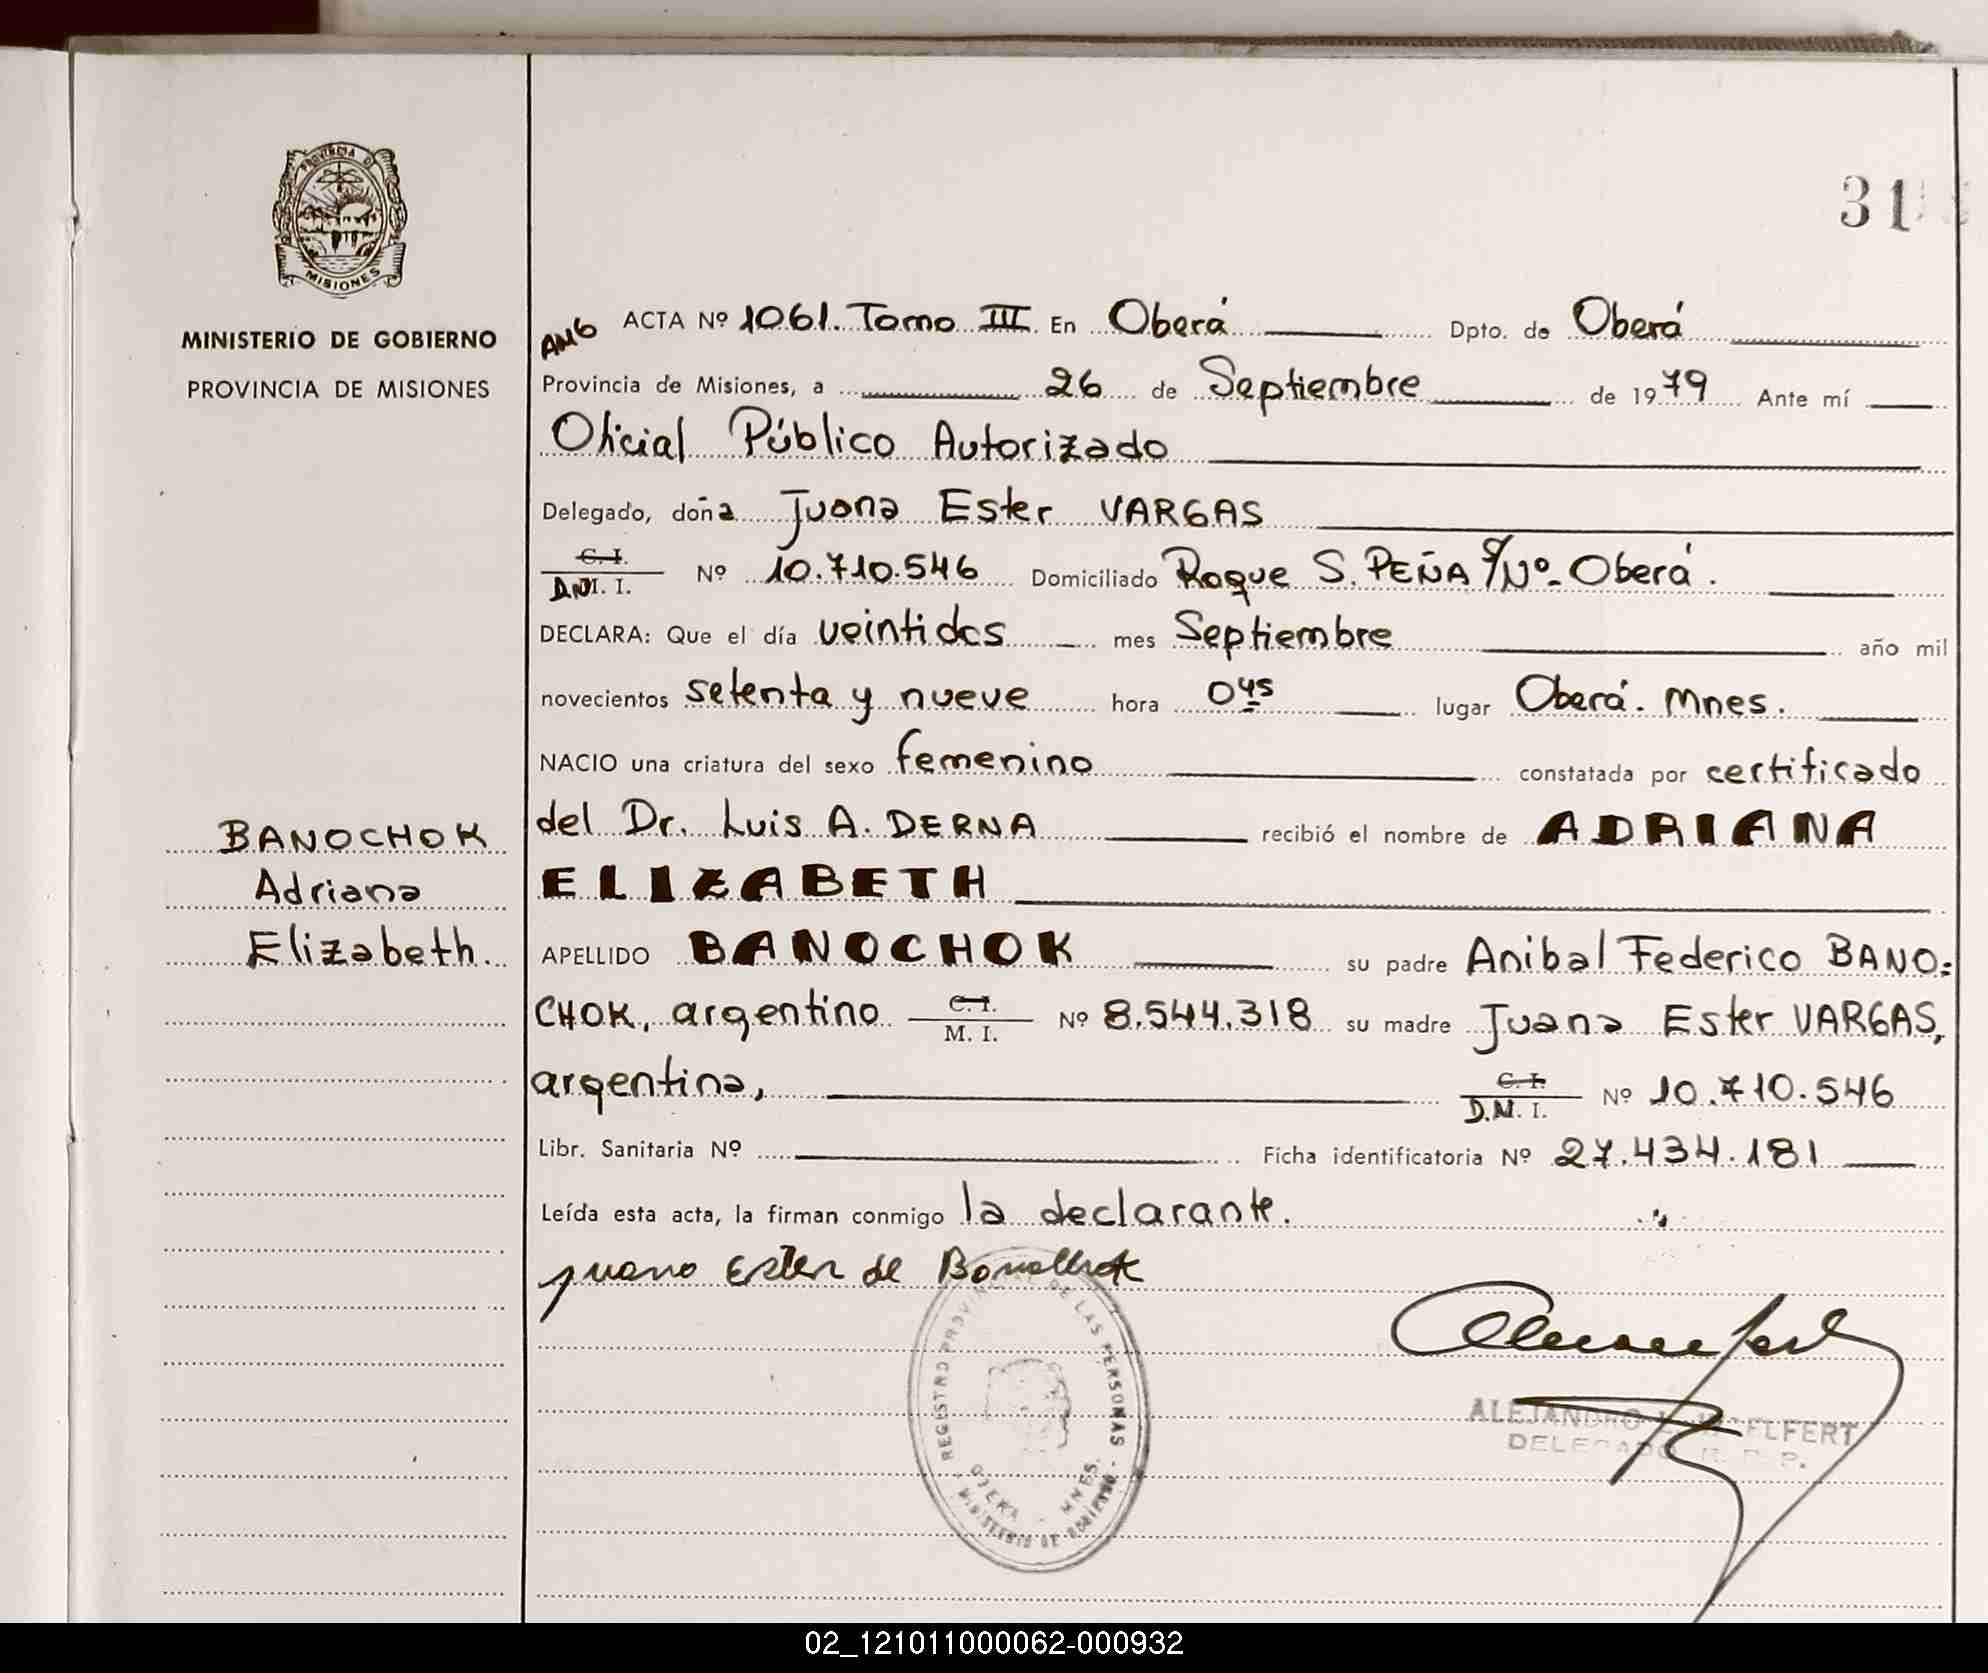 PROVINCIA DE
MISIONES
MINISTERIO DE GOBIERNO
PROVINCIA DE MISIONES
31
AMG ACTA Nº 1061. Tomo III En Oberá Dpto. de Oberá
Provincia de Misiones, a 26 de Septiembre de 1979 Ante mí
Oficial Público Autorizado
Delegado, doña Juana Ester VARGAS
C. I.
D.N.I. Nº 10.710.546 Domiciliado Roque S. PEÑA S/Nº- Oberá.
DECLARA: Que el día veintidos mes Septiembre año mil
novecientos setenta y nueve hora 0 45 lugar Oberá. Mnes.
NACIO una criatura del sexo femenino constatada por certificado
del Dr. Luis A. DERNA recibió el nombre de ADRIANA
ELIZABETH
BANOCHOK
Adriana
Elizabeth.
APELLIDO BANOCHOK su padre Anibal Federico BANO=
CHOK, argentino C. I. M. I. Nº 8.544.318 su madre Juana Ester VARGAS,
argentina, C. I. D.N.I. Nº 10.710.546
Libr. Sanitaria Nº Ficha identificatoria Nº 27.434.181
Leída esta acta, la firman conmigo la declarante.
Juana Ester de Banochok
REGISTRO PROVINCIAL DE LAS PERSONAS
MINISTERIO DE GOBIERNO
OBERA - MNES.
ALEJANDRO
DELEGADO R. P. P.
02_121011000062-000932